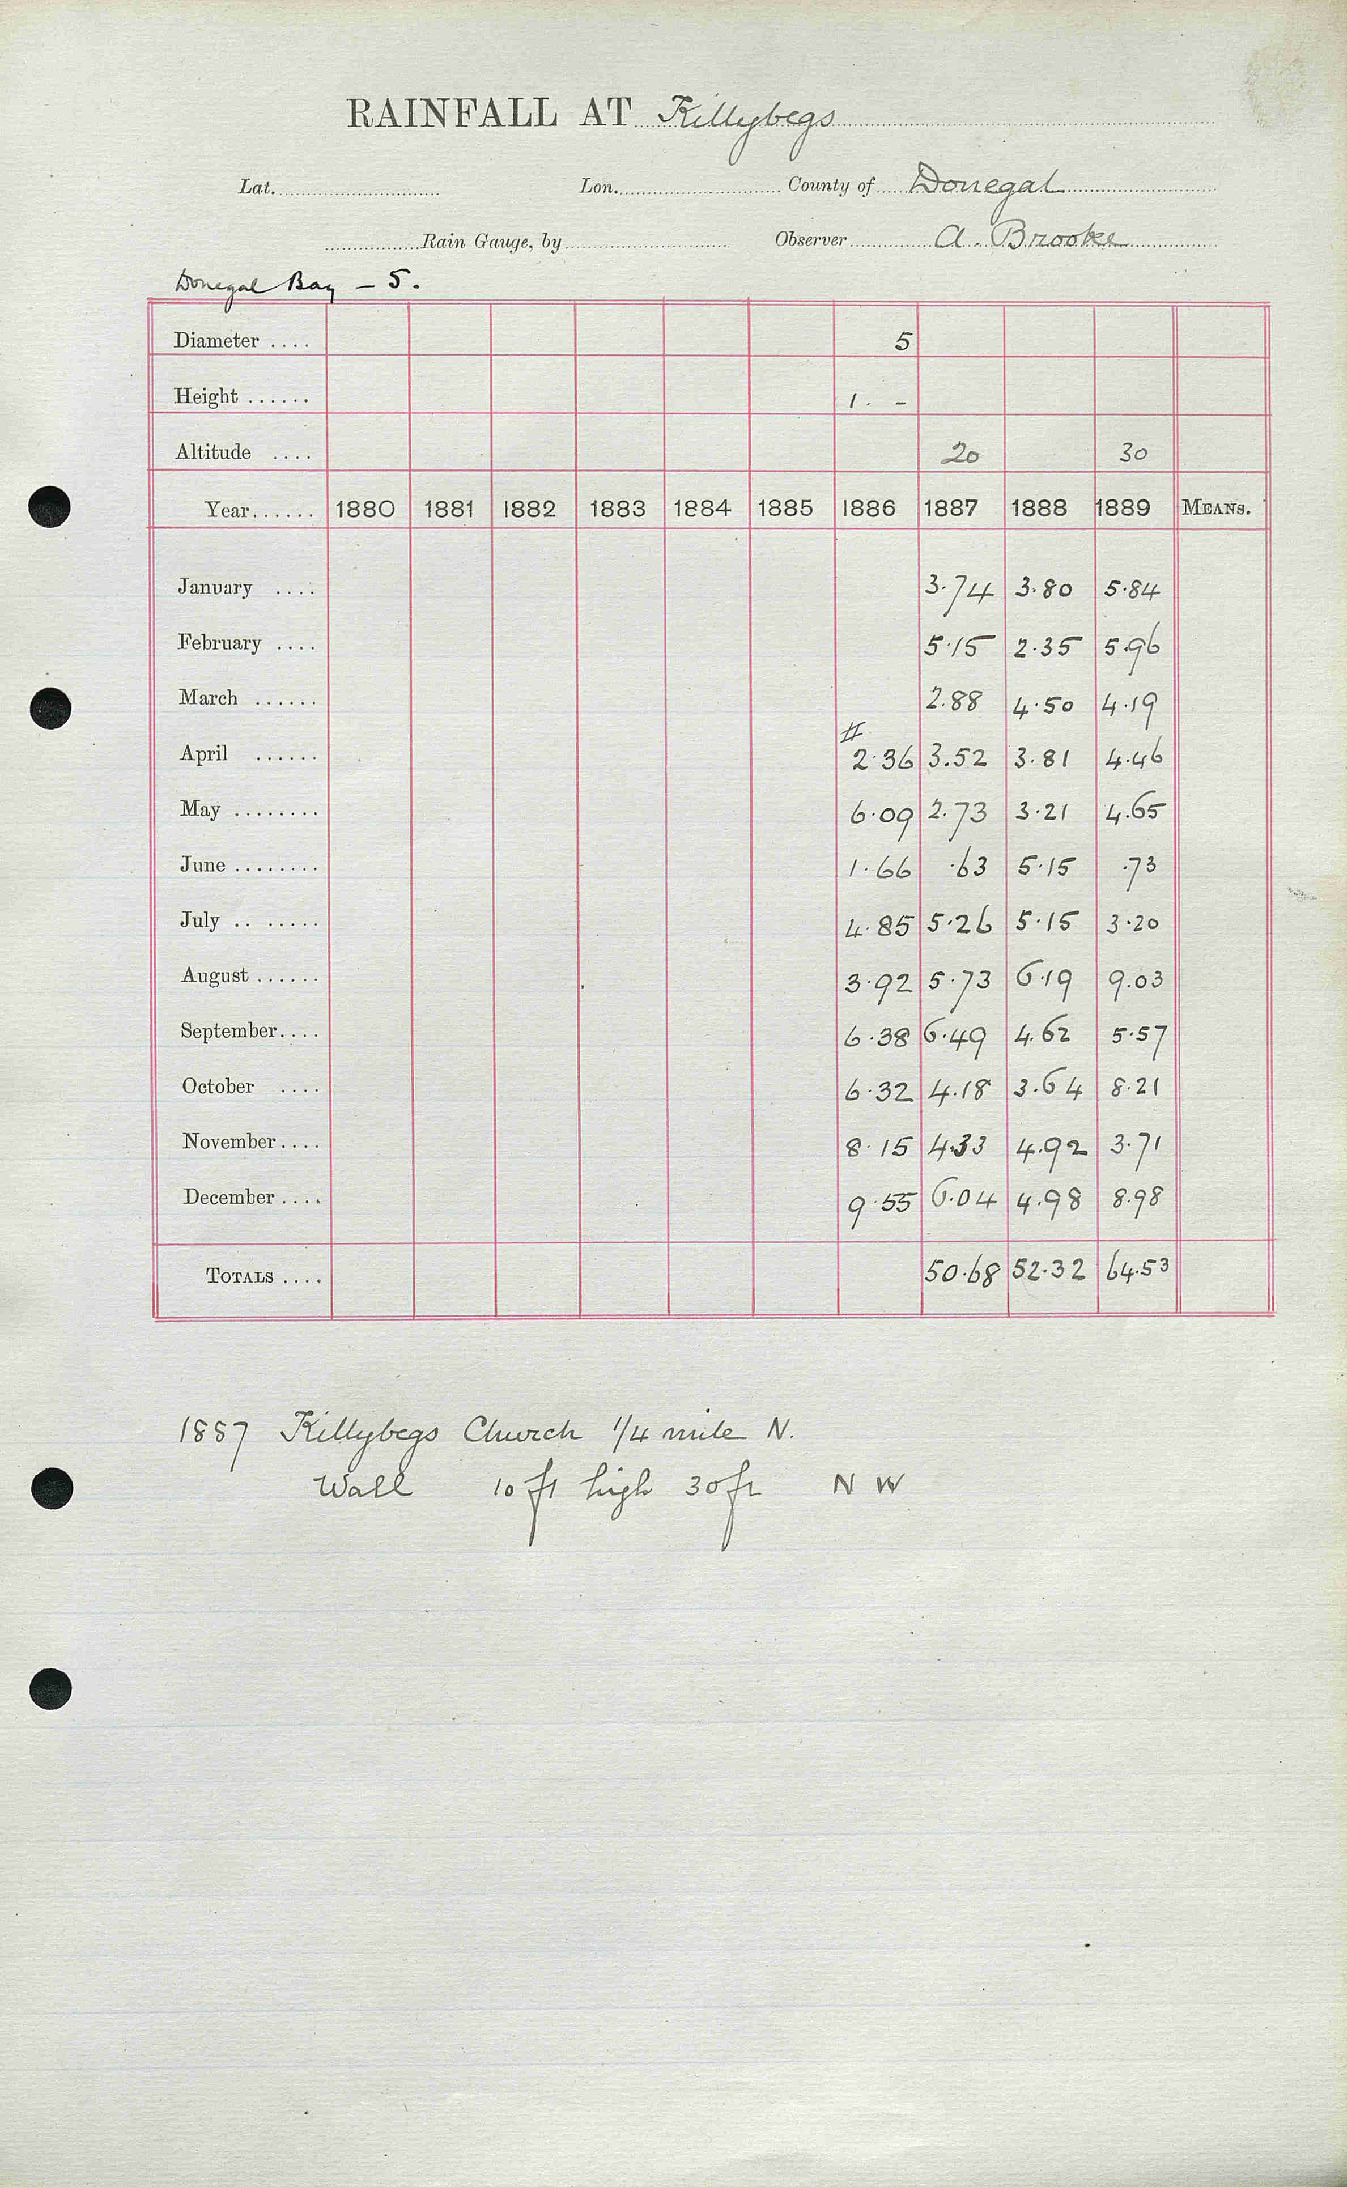 RAINFALL AT Killybegs
Lat. Lon. County of Donegal
Rain Gauge, by Observer A. Brooke
Donegal Bay – 5.
Diameter .... 5
Height ...... 1. –
Altitude .... 20 30
Year...... 1880 1881 1882 1883 1884 1885 1886 1887 1888 1889 MEANS.
January .... 3.74 3.80 5.84
February .... 5.15 2.35 5.96
March ...... 2.88 4.50 4.19
#
April ...... 2.36 3.52 3.81 4.46
May ........ 6.09 2.73 3.21 4.65
June ........ 1.66 .63 5.15 .73
July .. ...... 4.85 5.26 5.15 3.20
August ...... 3.92 5.73 6.19 9.03
September.... 6.38 6.49 4.62 5.57
October .... 6.32 4.18 3.64 8.21
November.... 8.15 4.33 4.92 3.71
December.... 9.55 6.04 4.98 8.98
TOTALS .... 50.68 52.32 64.53
1887 Killybegs Church 1/4 mile N.
Wall 10 ft high 30 ft N W